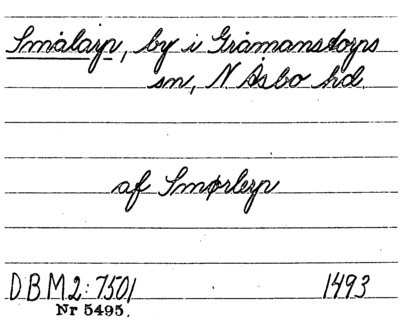 Smålarp, by i Gråmanstorps
sn, N Åsbo hd.
af Smørlerp
DBM2:7501 1493
Nr 5495.